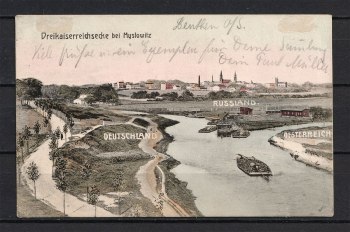 Dreikaiserreichsecke bei Myslowitz
Beuthen
Viele Grüße u. ein Exemplar für Deine Samlung
Dein Paul Müller
RUSSLAND
DEUTSCHLAND
OESTERREICH